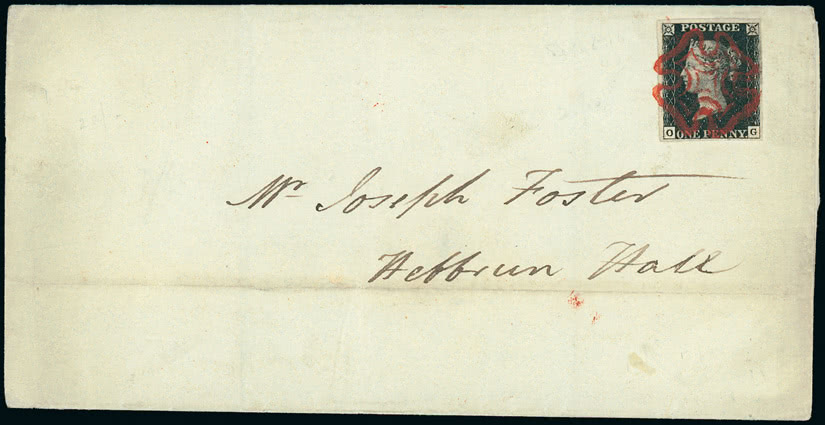 POSTAGE
O G
ONE PENNY.
Mr Joseph Foster
Hebbrun Hall